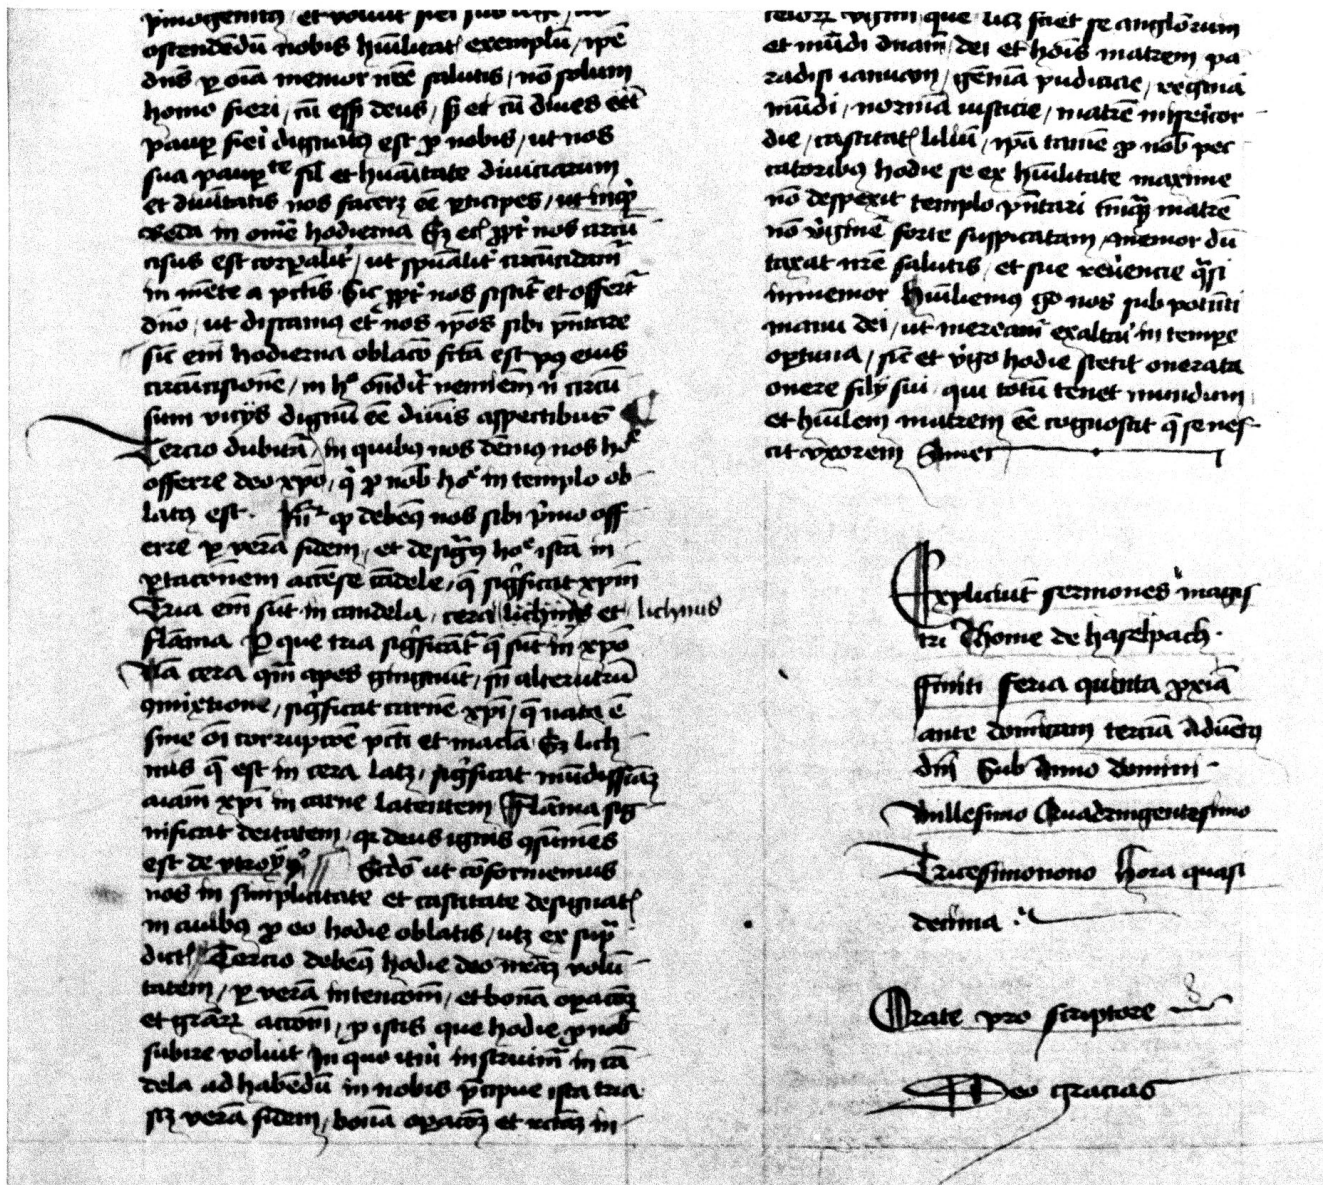 ostendendū nobis hūilitat exemplū / ip̄e
dn̄s ꝑ oīa memor nr̄e salutis / nō solum
homo fieri / cū esset deus / sꝫ et cū dives eēt
paup fieri dignatꝰ est ꝓ nobis / ut nos
sua paupte sil et huāitate diviciarum
et divītatis nos facerꝫ eē ꝑticipes / ut inqt
Beda in omēl hodierna Sꝫ ecī ꝓpt nos circū
cisus est corꝑalit / ut spūalit circūcidam̄
in mēte a pctīs Sic ꝓpt nos sistit et offert
dn̄o / ut discamꝰ et nos ip̄os sibi p̄ntare
sic em̄ hodierna oblacō fctā est pꝰ eius
circūcisionē / in hͦ ōndit neminem n̄ circū
sum vicijs dignū eē divīs aspectibus
Tercio dubitat / in quibꝰ nos dēmꝰ nos hoͤ
offerre deo xp̄o / qi ꝓ nob hoͤ in templo ob
latꝰ est. ꝙ debemꝰ nos sibi pͥmo off
erre ꝑ verā fidem / et desigtꝰ hoͤ ista in
ꝑtacōnem accēse cādele / q̄ sigͥficat xp̄m
Tria em̄ sūt in candela / cera lichinꝰ et lichnus
flāma Per que tria sigͥficāt q̄ sūt in xp̄o
Nā cera qm̄ apes gingnūt / sn̄ alterutrū
ꝯmixtione / sigͥficat carnē xp̄i / q̄ nata ē
sine oī corrupcōe pctī et macla Sꝫ lich
nus q̄ est in cera latꝫ / sigͥficat mūdissimā
aīam xp̄i in carne latentem Flāma sig
nificat deitatem / qꝛ deus ignis ꝯsumēs
est de utroꝫ Scdō ut cōformemus
nos in simplicitate et castitate designat
in avibꝰ ꝓ eo hodie oblatis / utꝫ ex supͣ
dict Tercio debemꝰ hodie deo nr̄am volū
tatem / ꝑ verā intencōm / et bonā oꝑacōꝫ
et grāꝝ accōm / ꝓ istis que hodie ꝓ nob
subire voluit In quo itꝰ instruim̄ in cā
dela ad habendū in nobis p̄cipue ista tria
scꝫ verā fidem / bonā oꝑacōꝫ et rctāꝫ in
que licꝫ sciret se anglōrum
et mūdi dn̄am / dei et hoīs matrem pa
radisi ianuam / gēmā pudicicie / reginā
mūdi / normā iusticie / matrē mīsericor
die / castitat liliū / ip̄a tamē ꝓ nob pec
catoribꝰ hodie se ex hūilitate maxime
nō despexit templo p̄ntari tāq̄ matrē
nō vͥginē forte suspicatam / memor dū
taxat nr̄e salutis / et sue revēencie q̄si
inmemor Hūiliemꝰ gͦ nos sub potēti
manu dei / ut mereamͬ exaltari in tempe
oportuna / sic et vͥgo hodie stetit onerata
onere filij sui / qui totū tenet mundum
et hūilem matrem eē cognoscit q̄ se nes
cit uxorem Amen
Expliciūt sermones magis
tri Thome de haselpach.
Finiti feria quinta ꝓxīa
ante domīcam terciā Adūentꝰ
dn̄i Sub Anno domini.
Millesimo Quadringentesimo
Tricesimonono Hora quasi
decima
Orate pro scriptore
Deo gracias